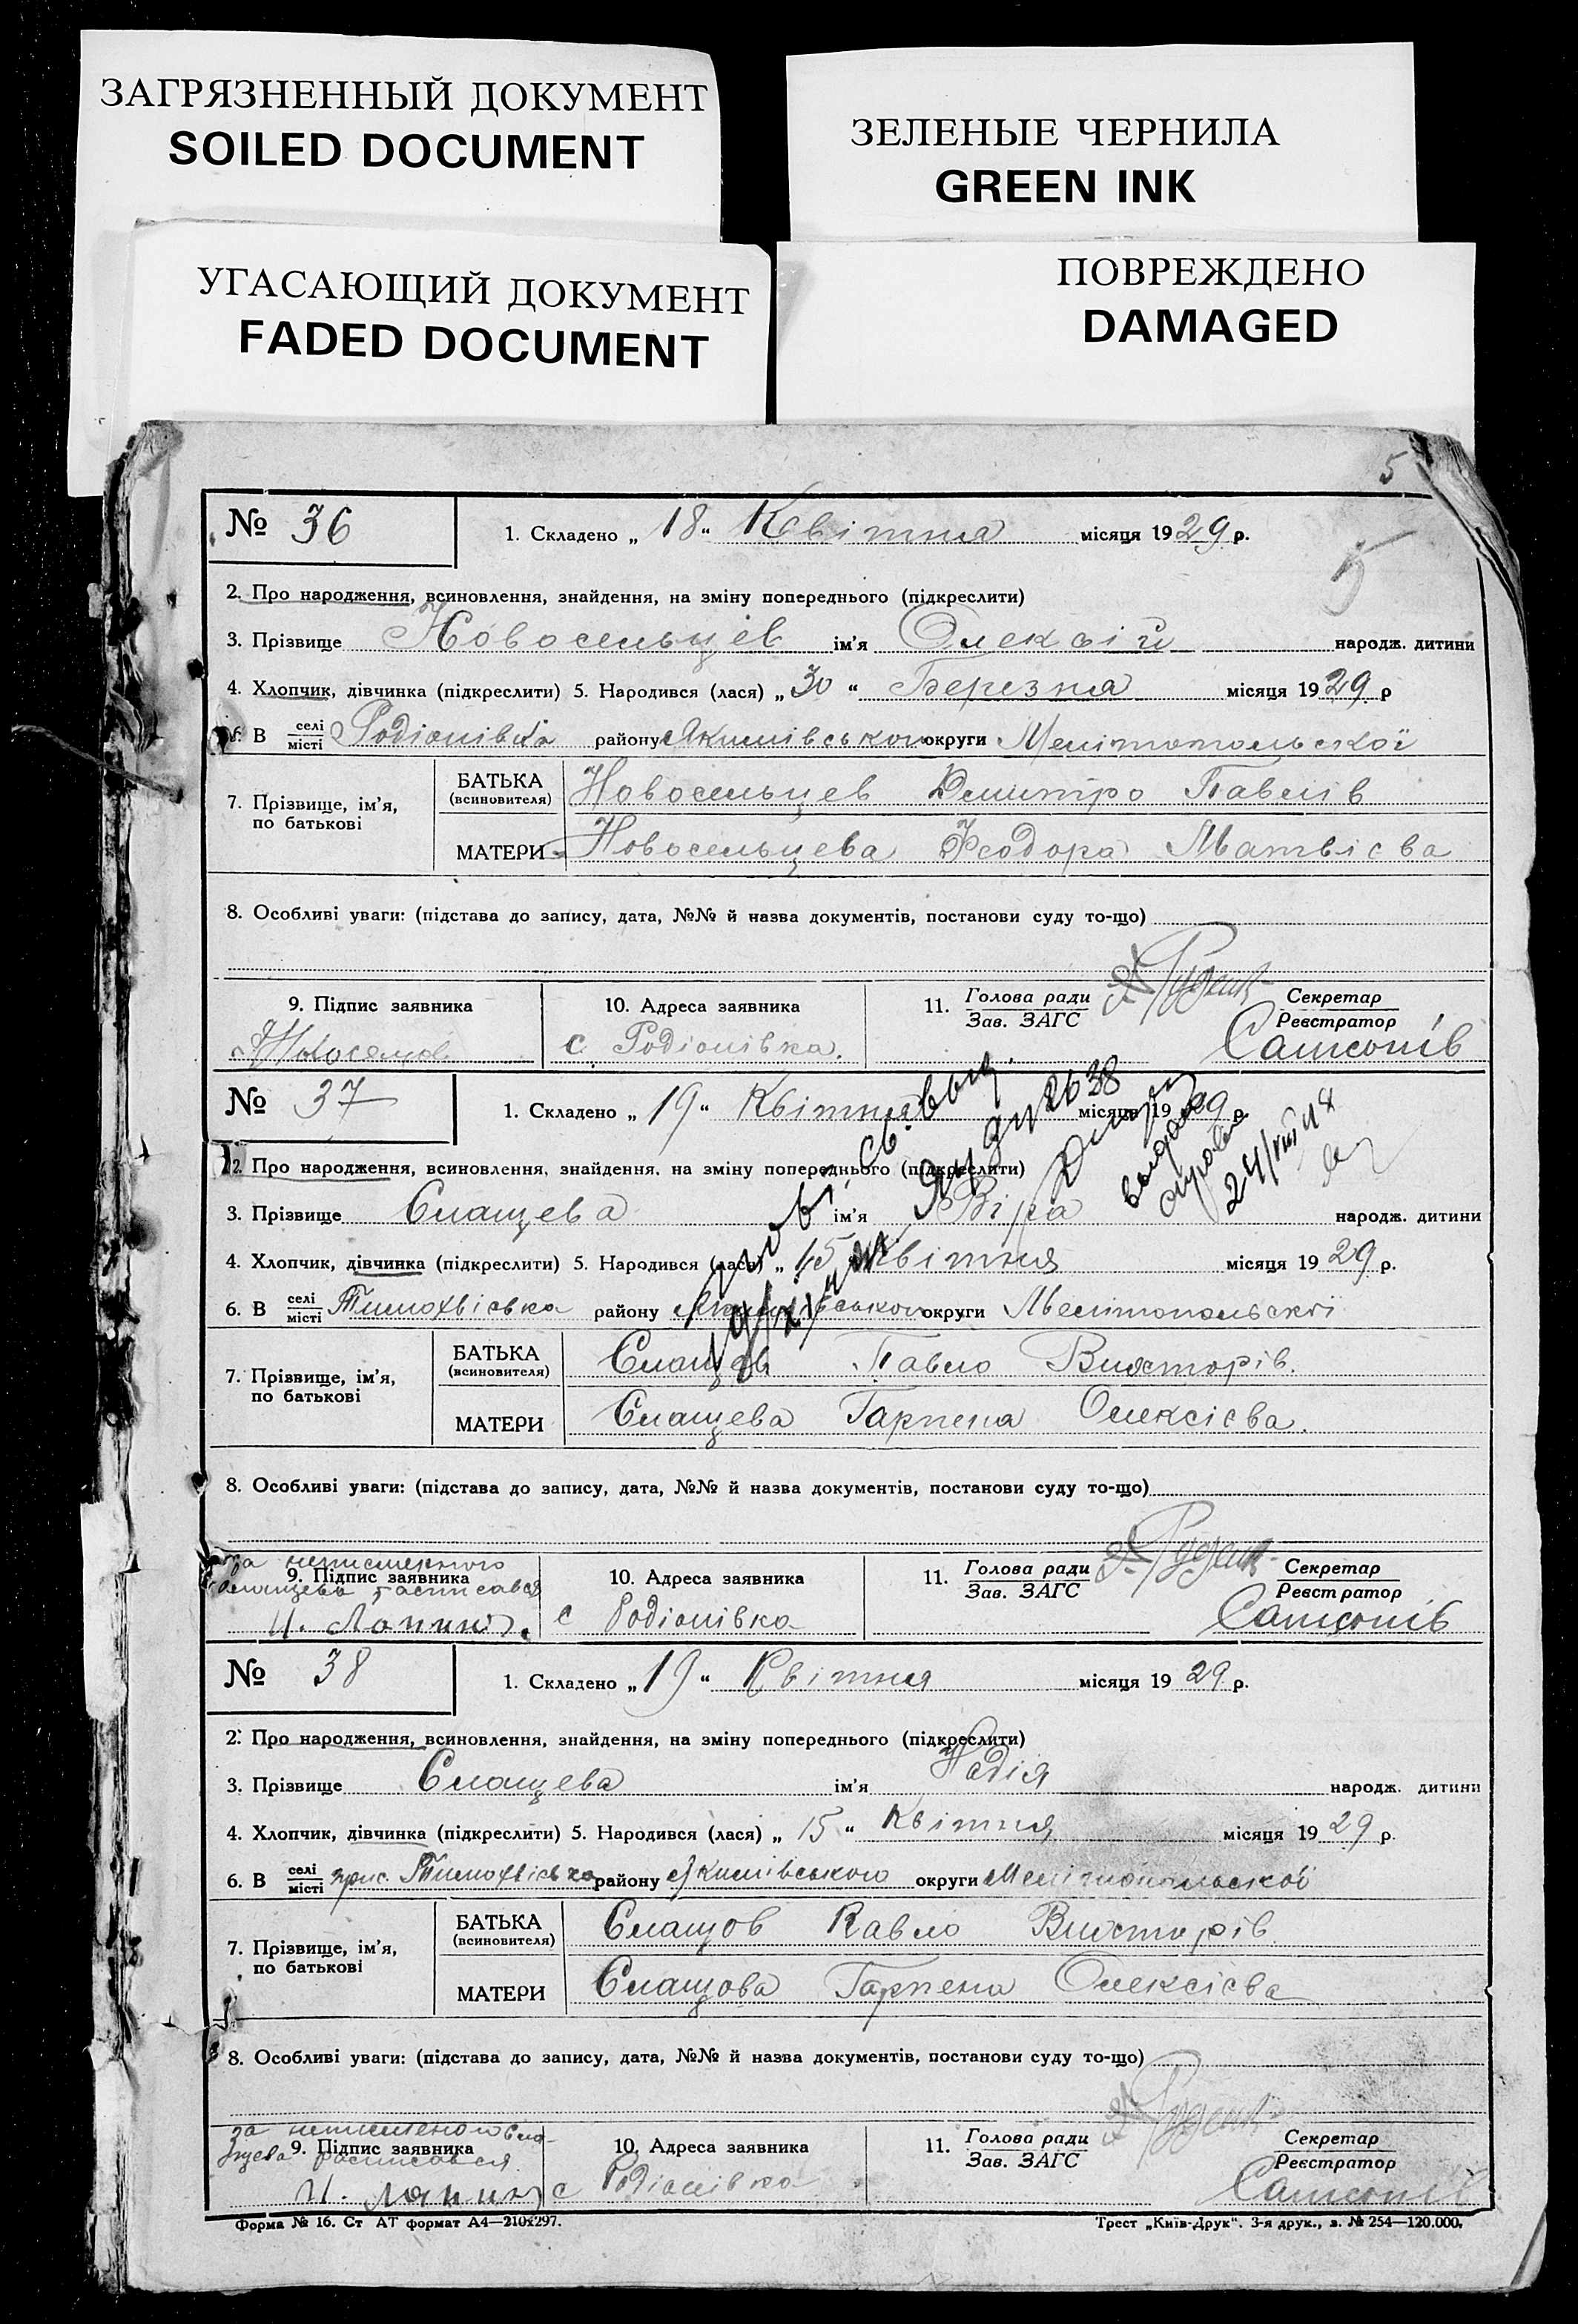 ЗАГРЯЗНЕННЫЙ ДОКУМЕНТ
SOILED DOCUMENT
ЗЕЛЕНЫЕ ЧЕРНИЛА
GREEN INK
УГАСАЮЩИЙ ДОКУМЕНТ
FADED DOCUMENT
ПОВРЕЖДЕНО
DAMAGED
5
5
№ 36
1. Складено „ 18 “ Квітня місяця 1929 р.
2. Про народження, всиновлення, знайдення, на зміну попереднього (підкреслити)
3. Прізвище Новосельцев ім'я Олексій народж. дитини
4. Хлопчик, дівчинка (підкреслити) 5. Народився (лася) „ 30 “ Березня місяця 1929 р
6. В селі місті Родіонівка району Якимівського округи Мелітопольської
7. Прізвище, ім'я, по батькові
БАТЬКА (всиновителя) Новосельцев Дмитро Павлів
МАТЕРИ Новосельцева Феодора Матвієва
8. Особливі уваги: (підстава до запису, дата, №№ й назва документів, постанови суду то-що)
9. Підпис заявника
10. Адреса заявника
с Родіонівка.
11. Голова ради
Зав. ЗАГС
Секретар
Реєстратор
Самсонів
№ 37
1. Складено „ 19 “ Квітня місяця 1929 р.
2. Про народження, всиновлення, знайдення, на зміну попереднього (підкреслити)
3. Прізвище Слащева ім'я Віра народж. дитини
4. Хлопчик, дівчинка (підкреслити) 5. Народився (лася) „ 15 “ Квітня місяця 1929 р.
6. В селі місті Тимохвіївка району Якимівського округи Мелітопольскої
7. Прізвище, ім'я, по батькові
БАТЬКА (всиновителя) Слащев Павло Вікторів.
МАТЕРИ Слащева Гарпена Олексієва.
8. Особливі уваги: (підстава до запису, дата, №№ й назва документів, постанови суду то-що)
за неписменного
9. Підпис заявника
Слащева росписався
И. Лапин
10. Адреса заявника
с Родіонівка
11. Голова ради
Зав. ЗАГС
Секретар
Реєстратор
Самсонів
№ 38
1. Складено „ 19 “ Квітня місяця 1929 р.
2. Про народження, всиновлення, знайдення, на зміну попереднього (підкреслити)
3. Прізвище Слащева ім'я Надія народж. дитини
4. Хлопчик, дівчинка (підкреслити) 5. Народився (лася) „ 15 “ Квітня місяця 1929 р.
6. В селі місті Тимохвіївка району Якимівського округи Мелітопольської
7. Прізвище, ім'я, по батькові
БАТЬКА (всиновителя) Слащов Павло Вікторів
МАТЕРИ Слащова Гарпена Олексієва
8. Особливі уваги: (підстава до запису, дата, №№ й назва документів, постанови суду то-що)
за неписменого Сла-
щева росписався
9. Підпис заявника
И. Лапин
10. Адреса заявника
с Родіонівка
11. Голова ради
Зав. ЗАГС
Секретар
Реєстратор
Самсонів
Форма № 16. Ст АТ формат А4—210x297.
Трест „Київ-Друк“. 3-я друк., з. № 254—120.000.